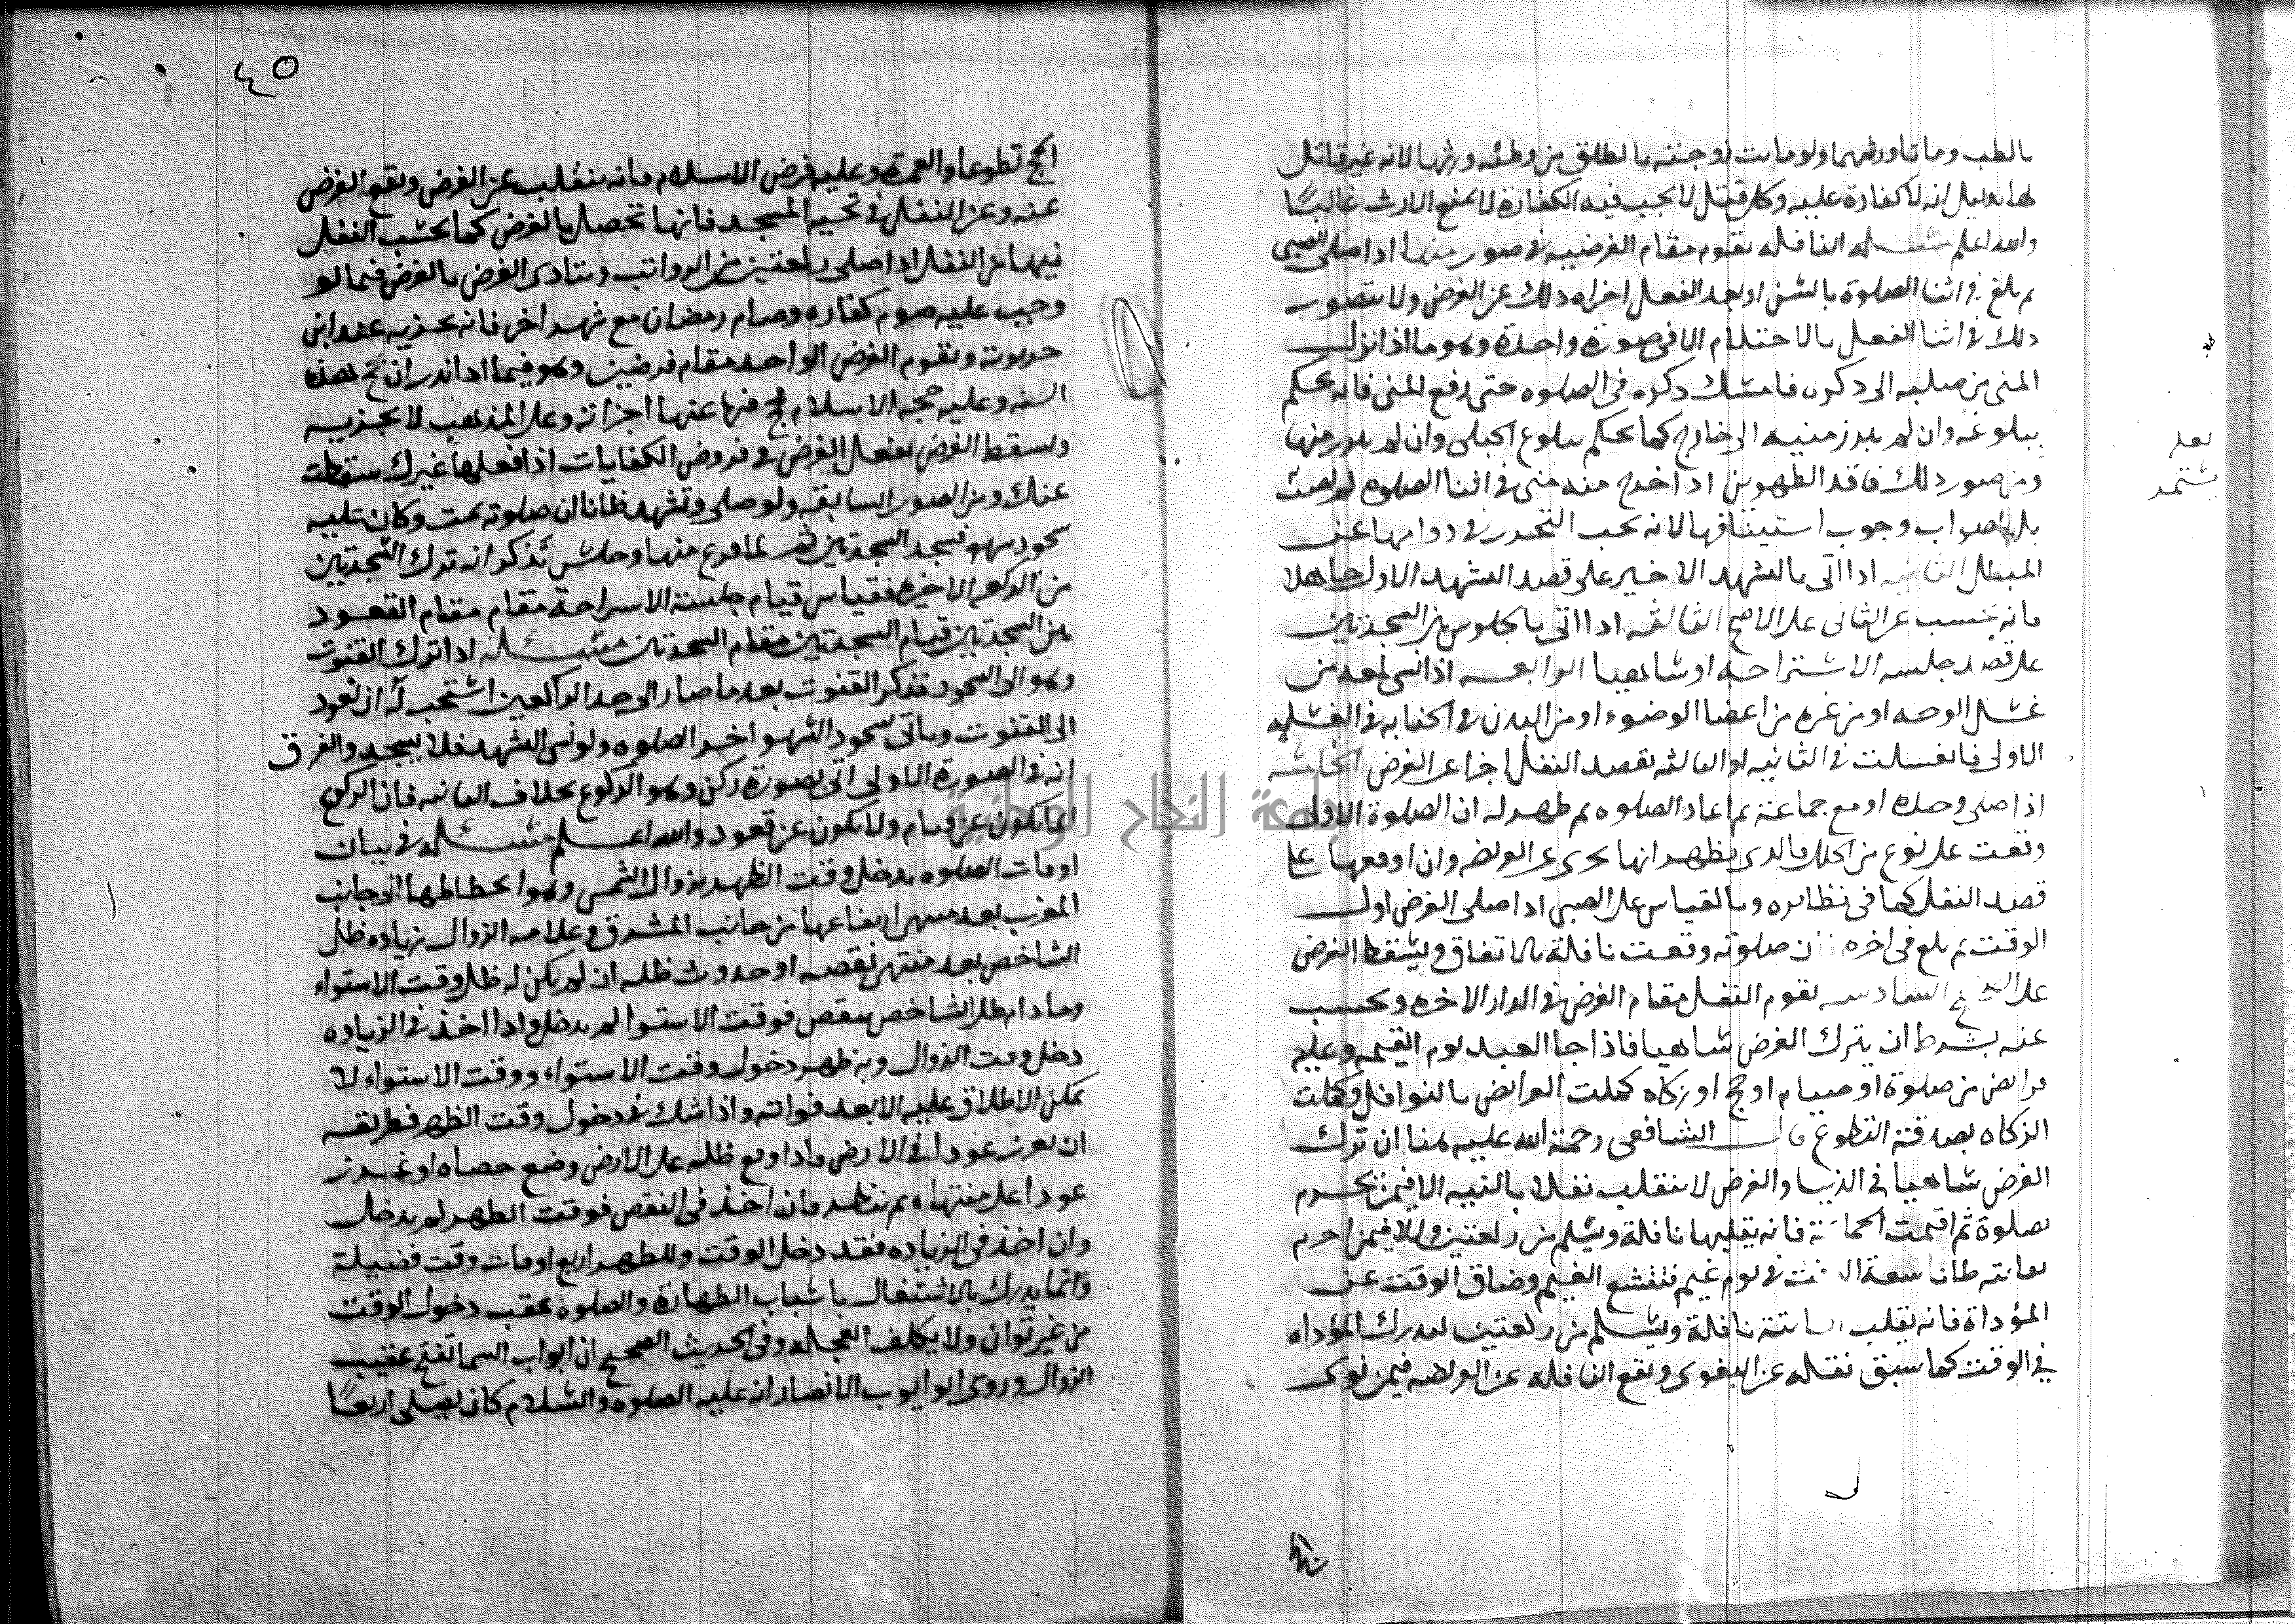 بالطب وماتا ورثهما ولو ماتت زوجته بالطلق من وطئه ورثها لانه غير قاتل
لها بدليل انه لا كفارة عليه وكل قتل لا يجب فيه الكفارة لا يمنع الارث غالبًا
والله اعلم مسله النافله تقوم مقام الفرضيه في صور منها اذا صلى الصبي
ثم بلغ في اثنا الصلوة بالسن او بعد الفعل اجزاه ذلك عن الفرض ولا يتصور
ذلك في اثنا الفعل بالاحتلام الا في صورة واحدة وهو ما اذا نزل
المني من صلبه الى ذكره فامسك ذكره في الصلوه حتى رفع المني فانه يحكم
ببلوغه وان لم يبرز منيه الى خارج كما يحكم ببلوغ الحبلى وان لم يبرز منيها
ومن صور ذلك فاقد الطهورين اذا خرج منه مني في اثنا الصلوه لم
بل الصواب وجوب استينافها لانه يجب التحرز في دوامها عن
المبطل الثانيه اذا اتى بالتشهد الاخير على قصد التشهد الاول جاهلا
فانه يحسب عن الثاني على الاصح الثالثه اذا اتى بالجلوس بين السجدتين
على قصد جلسه الاستراحه او ساهيا الرابعه اذا نسى لمعه من
غسل الوجه او من غيره من اعضا الوضوء او من البدن في الجنابه في الغسله
الاولى فانغسلت في الثانيه او الثالثه بقصد النفل اجزا عن الفرض الخامسه
اذا صلى وحده او مع جماعة ثم اعاد الصلوه ثم ظهر له ان الصلوة الاولى
وقعت على نوع من الخلل فالذي يظهر انها تجزي عن الفرضه وان اوقعها على
قصد النفل كما في نظائره وبالقياس على الصبي اذا صلى الفرض اول
الوقت ثم بلغ في اخره ان صلوته وقعت نافلة بالاتفاق ويسقط الفرض
على السادسه تقوم النفل مقام الفرض في الدار الاخره ويحسب
عنه بشرط ان يترك الفرض ساهيا فاذا جا العبد يوم القيمه وعليه
فرائض من صلوة او صيام او حج او زكاه كملت الفرائض بالنوافل وكملت
الزكاه بصدقة التطوع قال الشافعي رحمة الله عليه هذا ان ترك
الفرض ساهيا في الدنيا والفرض لا ينقلب نفلا بالنيه الا فيمن تحرم
بصلوة ثم اقيمت الجماعة فانه يقلبها نافلة ويسلم من ركعتين والا فيمن احرم
بفائته ظانا سعة الوقت في يوم غيم فتقشع الغيم وضاق الوقت عن
المؤداة فانه يقلب الفائتة نافلة ويسلم من ركعتين ليدرك المؤداه
في الوقت كما سبق نقله عن البغوي وتقع النافله عن الفرضه فيمن نوى
بعد
٤٥
الحج تطوعا او العمرة وعليه فرض الاسلام فانه ينقلب عن الفرض ويقع الفرض
عنه وعن النفل في تحيه المسجد فانها تحصل بالفرض كما يحسب النفل
فيها عن النفل اذا صلى ركعتين من الرواتب ويتادى الفرض بالفرض فيما لو
وجب عليه صوم كفاره وصام رمضان مع شهر اخر فانه يجزيه عند ابن
حربويه ويقوم الفرض الواحد مقام فرضين وهو فيما اذا نذر ان يحج هذه
السنه وعليه حجه الاسلام فحج فيها عنها اجزاته وعلى المذهب لا يجزيه
ويسقط الفرض بفعل الفرض في فروض الكفايات اذا فعلها غيرك سقطت
عنك ومن الصور السابقه ولو صلى وتشهد ظانا ان صلوته تمت وكان عليه
سجود سهو فسجد السجدتين ثم لما فرغ منها وجلس تذكر انه ترك السجدتين
من الركعه الاخيره فقياس قيام جلسة الاستراحة مقام القعود
بين السجدتين قيام السجدتين مقام السجدتين مسئله اذا ترك القنوت
وهوى الى السجود فتذكر القنوت بعد ما صار الى حد الراكعين استحب له ان يعود
الى القنوت وياتى بسجود السهو اخر الصلوه ولو نسى التشهد فلا يسجد والفرق
انه في الصورة الاولى اتى بصورة ركن وهو الركوع بخلاف الثانيه فان الركوع
انما يكون عن قيام ولا يكون عن قعود والله اعلم مسئله في بيان
اوقات الصلوه يدخل وقت الظهر بزوال الشمس وهو انحطاطها الى جانب
المغرب بعد منتهى ارتفاعها من جانب المشرق وعلامه الزوال زياده ظل
الشاخص بعد منتهى نقصه او حدوث ظله ان لم يكن له ظل وقت الاستواء
وما دام ظل الشاخص ينقص فوقت الاستوا لم يدخل واذا اخذ في الزياده
دخل وقت الزوال وبه ظهر دخول وقت الاستواء ووقت الاستواء لا
يمكن الاطلاع عليه الا بعد فواته واذا شك في دخول وقت الظهر فطريقه
ان يغرز عودا في الارض فاذا وقع ظله على الارض وضع حصاه او غرز
عودا على منتهاه ثم ينتظر فان اخذ في النقص فوقت الظهر لم يدخل
وان اخذ في الزياده فقد دخل الوقت وللظهر اربع اوقات وقت فضيلة
وانما يدرك بالاشتغال باسباب الطهارة والصلوه عقب دخول الوقت
من غير توان ولا يكلف العجله وفي الحديث الصحيح ان ابواب السما تفتح عقيب
الزوال وروى ابو ايوب الانصار انه عليه الصلوه والسلام كان يصلى اربعًا
جامعة النجاح الوطنية